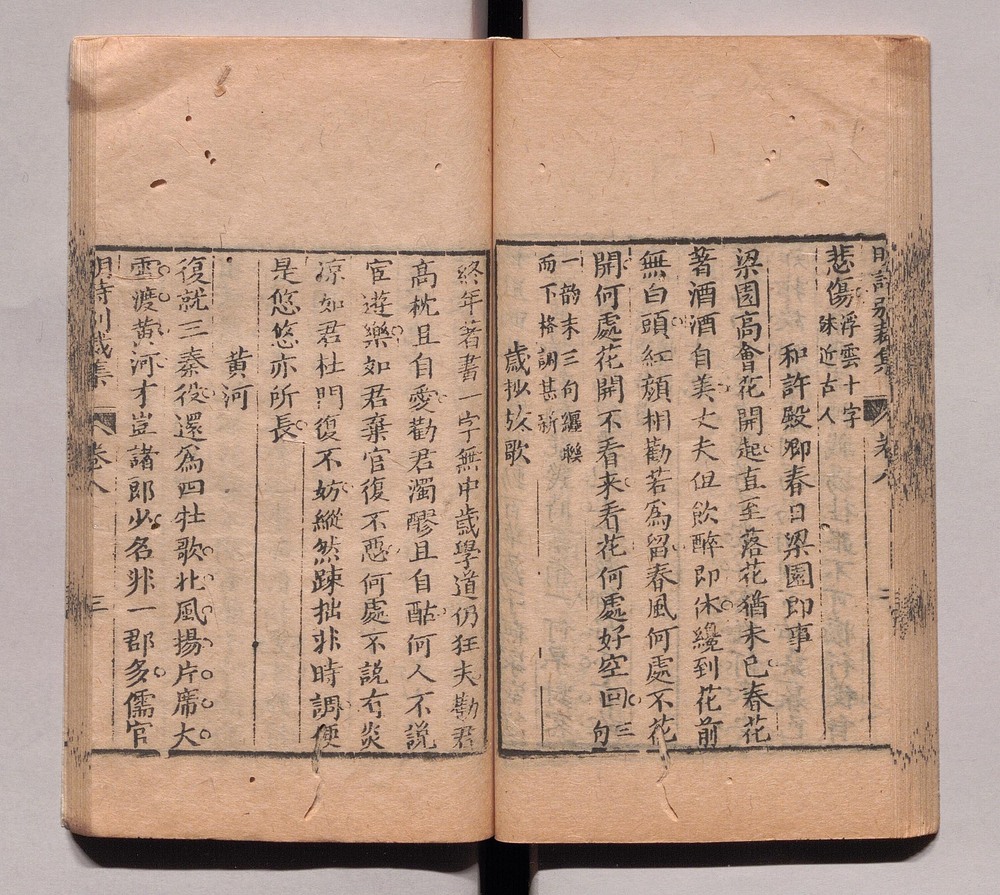 明詩別裁集 卷八 二
悲傷浮雲十字
殊近古人
和許殿卿春日梁園即事
梁園高會花開起直至落花猶未已春花
著酒酒自美丈夫但飲醉即休纔到花前
無白頭紅顏相勸若爲留春風何處不花
開何處花開不看来看花何處好空回三句
一韵末三句纒聯
而下格調甚新
歲抄放歌
終年著書一字無中歲學道仍狂夫勸君
高枕且自愛勸君濁醪且自酤何人不說
宦遊樂如君棄官復不惡何處不說有炎
凉如君杜門復不妨縱然踈拙非時調便
是悠悠亦所長
黄河
復就三秦役還爲四牡歌北風揚片席大
雪渡黄河才豈諸郎少名非一郡多儒官
明詩別裁集 卷八 三